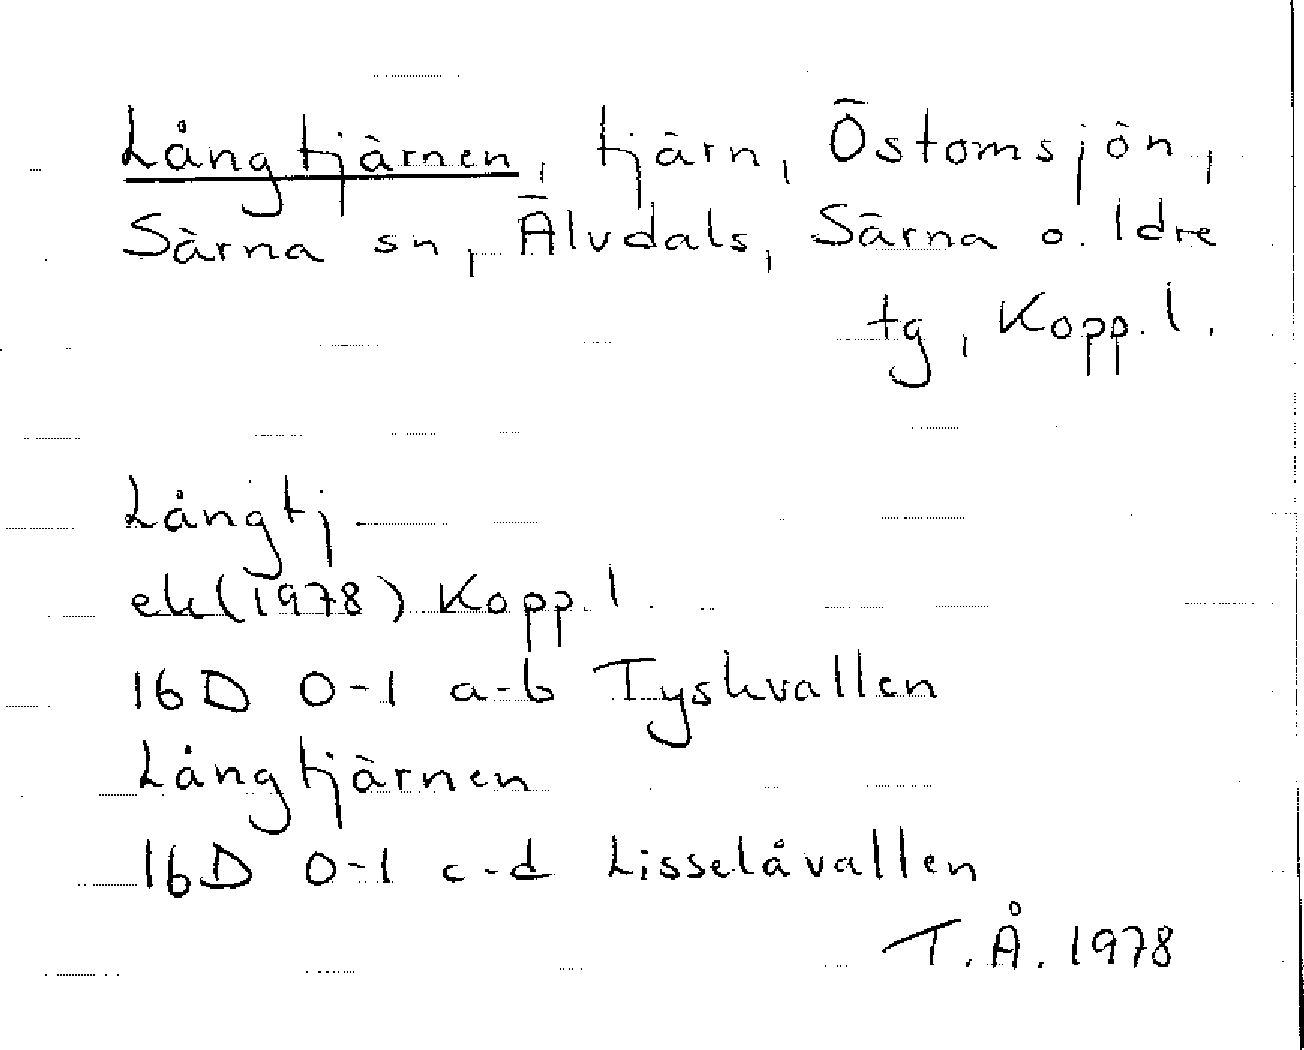 Långtjärnen, tjärn, Östomsjön,
Särna sn, Älvdals, Särna o. Idre
tg, Kopp. l.
Långtj
ek(1978) Kopp. l
16D 0-1 a-b Tyskvallen
Långtjärnen
16D 0-1 c-d Lisselåvallen
T.Å. 1978